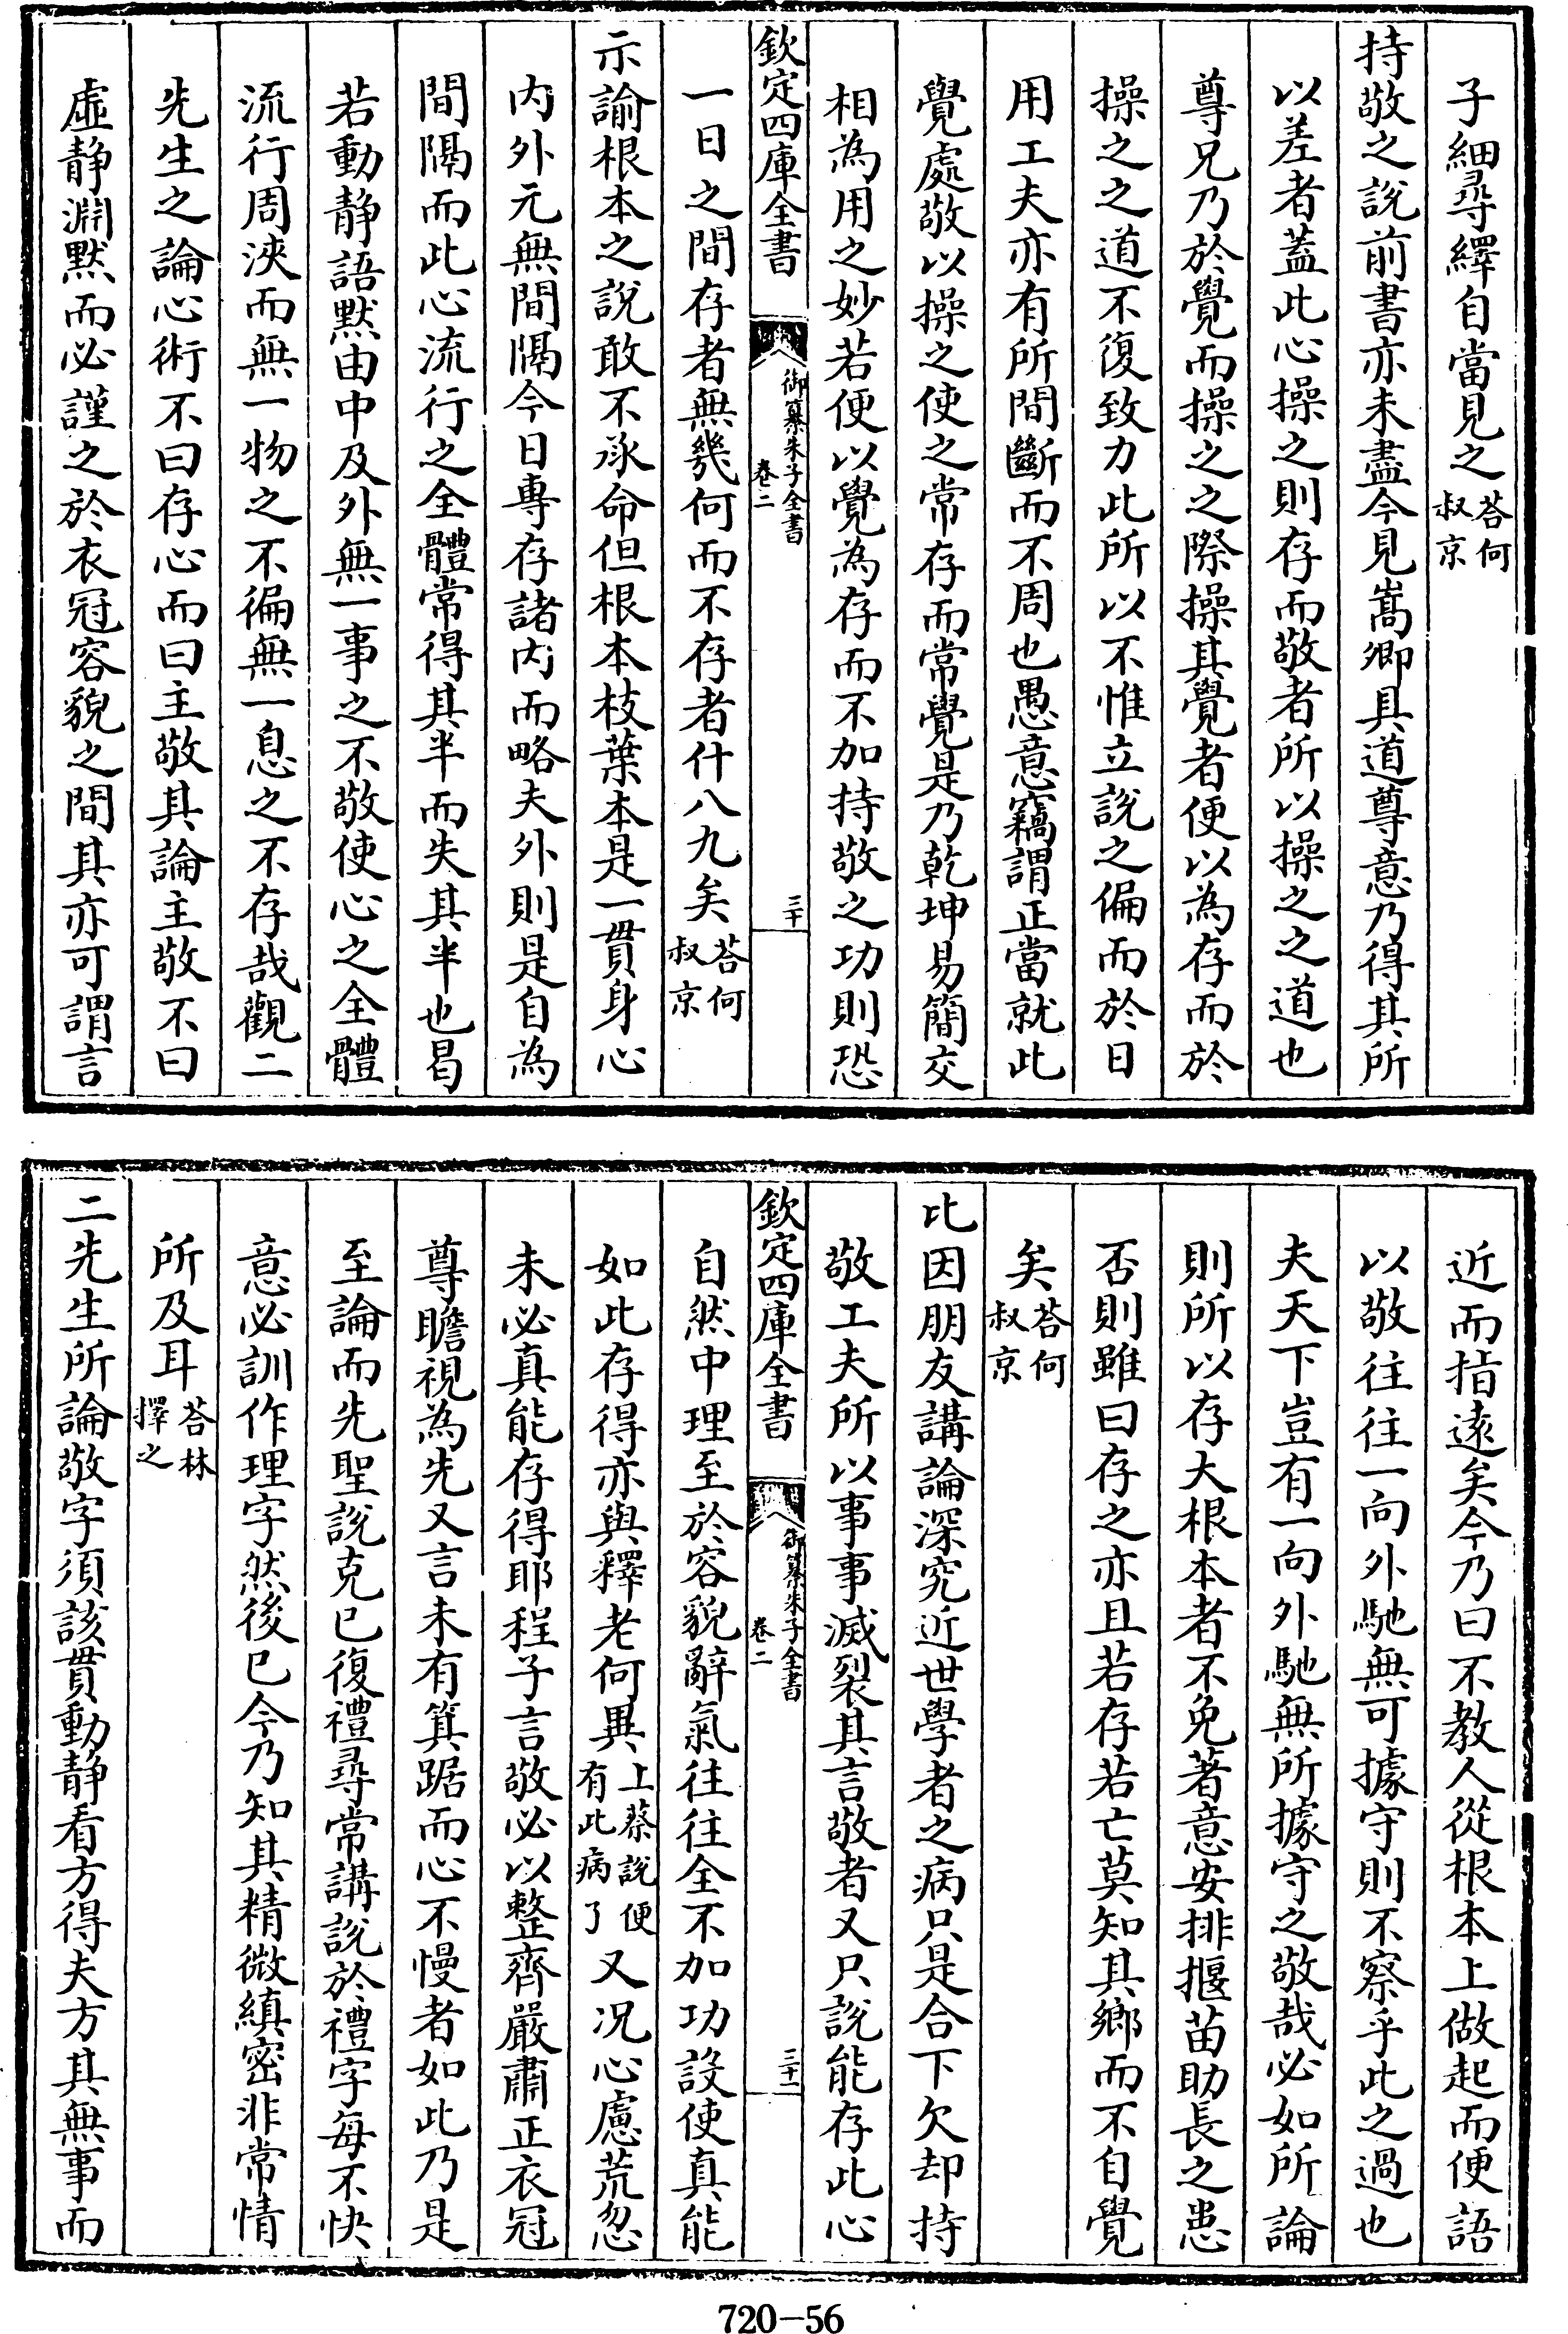 子細尋繹自當見之答何叔京
持敬之說前書亦未盡今見嵩卿具道尊意乃得其所
以差者蓋此心操之則存而敬者所以操之之道也
尊兄乃於覺而操之之際操其覺者便以為存而於
操之之道不復致力此所以不惟立說之偏而於日
用工夫亦有所間斷而不周也愚意竊謂正當就此
覺處敬以操之使之常存而常覺是乃乾坤易簡交
相為用之妙若便以覺為存而不加持敬之功則恐
欽定四庫全書
御纂朱子全書
卷二
三十
一日之間存者無幾何而不存者什八九矣答何叔京
示諭根本之說敢不承命但根本枝葉本是一貫身心
內外元無間隔今日專存諸內而略夫外則是自為
間隔而此心流行之全體常得其半而失其半也曷
若動靜語默由中及外無一事之不敬使心之全體
流行周浹而無一物之不徧無一息之不存哉觀二
先生之論心術不曰存心而曰主敬其論主敬不曰
虛靜淵默而必謹之於衣冠容貌之間其亦可謂言
近而指遠矣今乃曰不教人從根本上做起而便語
以敬往往一向外馳無可據守則不察乎此之過也
夫天下豈有一向外馳無所據守之敬哉必如所論
則所以存大根本者不免著意安排揠苗助長之患
否則雖曰存之亦且若存若亡莫知其鄉而不自覺
矣答何叔京
比因朋友講論深究近世學者之病只是合下欠却持
敬工夫所以事事滅裂其言敬者又只說能存此心
欽定四庫全書
御纂朱子全書
卷二
三十一
自然中理至於容貌辭氣往往全不加功設使真能
如此存得亦與釋老何異上蔡說便有此病了又况心慮荒忽
未必真能存得耶程子言敬必以整齊嚴肅正衣冠
尊瞻視為先又言未有箕踞而心不慢者如此乃是
至論而先聖說克己復禮尋常講說於禮字每不快
意必訓作理字然後已今乃知其精微縝密非常情
所及耳答林擇之
二先生所論敬字須該貫動靜看方得夫方其無事而
720-56